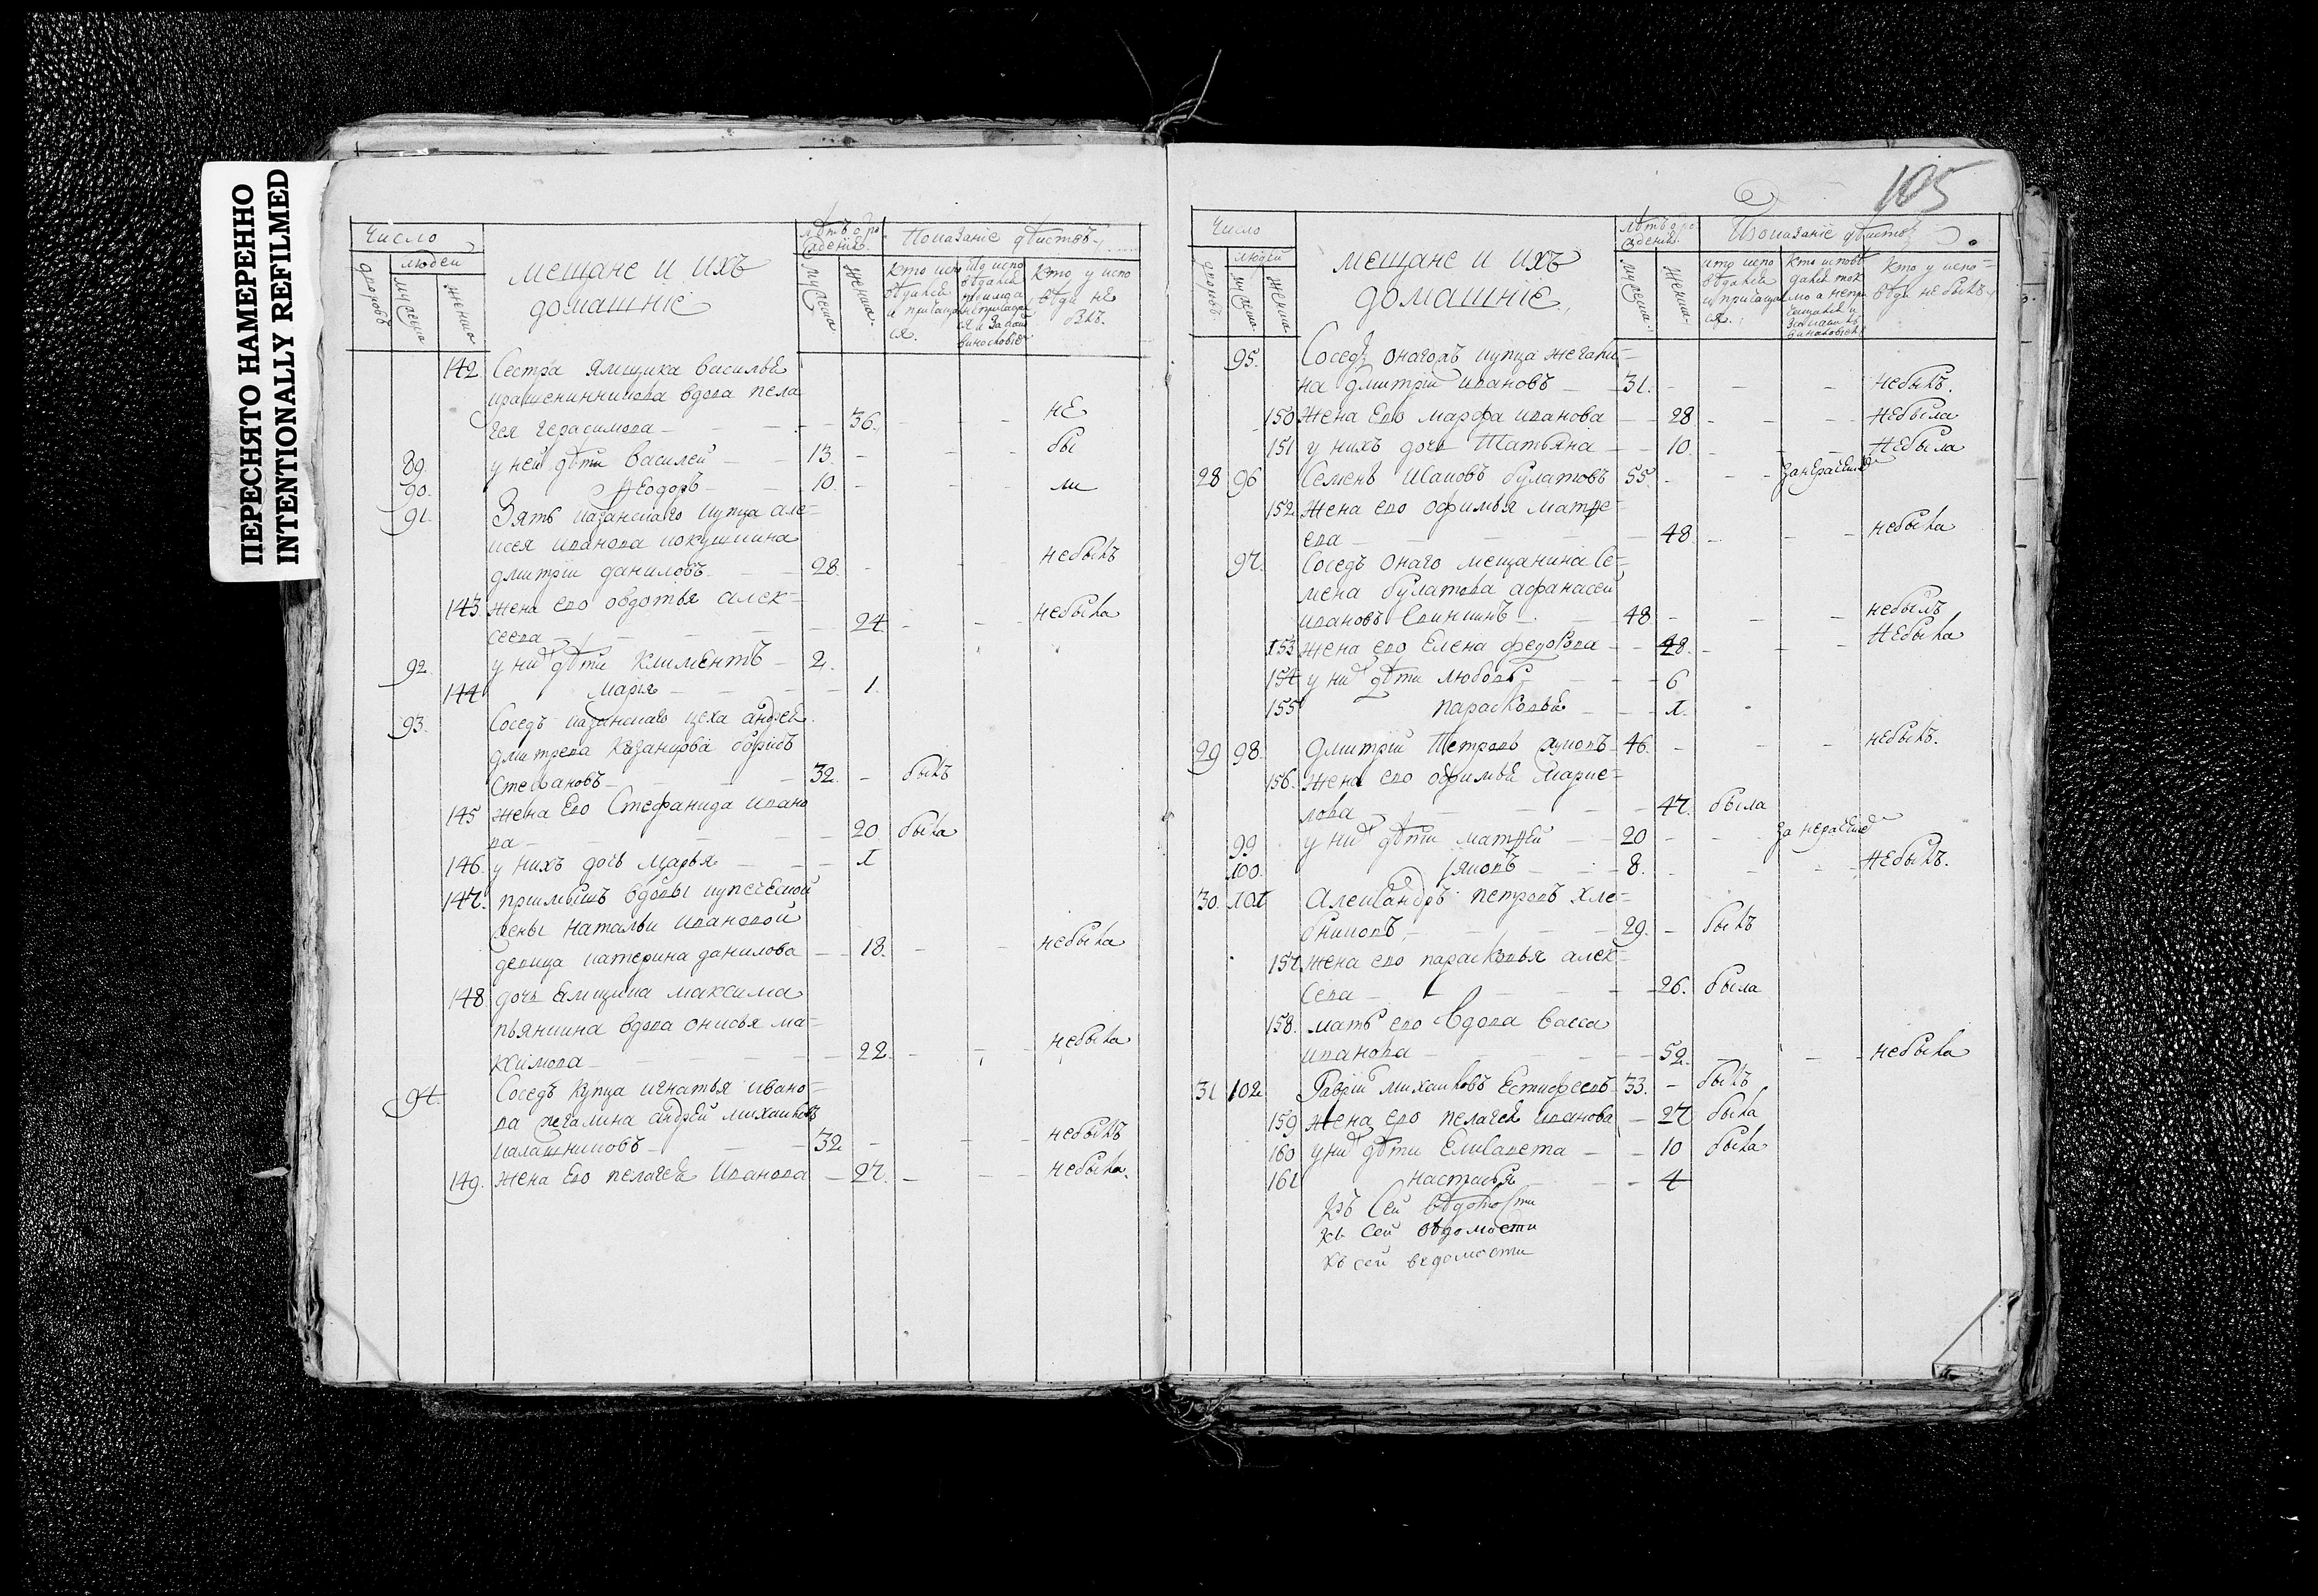 ПЕРЕСНЯТО НАМЕРЕННО
INTENTIONALLY REFILMED
Число
людей
дворовъ
мужеска
женска
мещане и ихъ
домашніе
лѣтъ о ро
жденія.
мужеска
женска.
Показаніе дѣйствъ
кто испо
вѣдался
и причащал
ся.
кто у испо
вѣди не
былъ.
142 Сестра ямщика василья
крашенинникова вдова пела
гея герасимова — 36. — — не
89. у ней дѣти василей — 13. — — — бы
90. Ѳеодоръ — 10. — — — ли
91. Зять казанскаго купца але=
ксея иванова кокушкина
дмитріи даниловъ — 28. — — небылъ
143 жена ево овдотья алек=
сеева — 24 — — небыла
92. у нихъ дѣти климентъ — 2.
144 марія — 1.
93. Соседъ казанскаго цеха андрея
дмитрева борисъ
Степановъ — 32. — былъ
145 жена ево Стефанида ивано
ва — 20 была
146. у нихъ дочь марья — 1
147. вдовы купеческой
жены натальи ивановой
девица катерина данилова — 18. — — небыла
148 дочь ямщика максима
пьянкина вдова онисья ма=
ксимова — 22. — — небыла
94. Соседъ купца игнатья ивано=
ва жегалина андрей михаиловъ
калашниковъ — 32 — — — небылъ
149. жена ево пелагея иванова — 27. — — небыла.
105
Число
людей
дворовъ
мужеска
женска
мещане и ихъ
домашніе.
лѣтъ о ро
жденія.
мужеска.
женска.
Показаніе дѣйствъ
кто испо
вѣдался
и причащал
ся.
кто исповѣ
дался ток
мо а непри
чащался и
за какимъ
винословіемъ
кто у испо=
вѣди не былъ.
95. Соседъ онагожъ купца жегали=
на дмитріи ивановъ — 31. — — — небылъ.
150 жена ево марфа иванова — 28 — — — небыла
151 у нихъ дочь Татьяна — 10. — — — небыла
28 96 Семенъ булатовъ 55. — — занераченіем
152. жена ево офимья матѳе=
ева — 48 — — — небыла
97. Соседъ онаго мещанина Се=
мена булатова афанасей
ивановъ — 48 — — — небылъ
153 жена ево Елена федорова — 48. — — — небыла
154 у нихъ дѣти любовь — 6
155 парасковья — 1.
29 98. Дмитрій Петровъ — 46. — — небылъ.
156. жена ево офимья
лова — 47. была
99. у нихъ дѣти матѳей — 20 — — за нераченіем
100. яковъ — 8. — — — небылъ.
30. 101 Александръ петровъ хле=
бниковъ, — 29. — былъ
157 жена ево парасковья алек=
сева — 26. была
158. мать ево вдова васса
иванова — 52. — — — небыла
31 102 михаиловъ 33. — былъ
159 жена ево пелагея иванова — 27 была
160 у нихъ дѣти Елисавета — 10 была
161 настасья — 4
къ сей вѣдомости
къ сей вѣдомости
къ сей ведомости